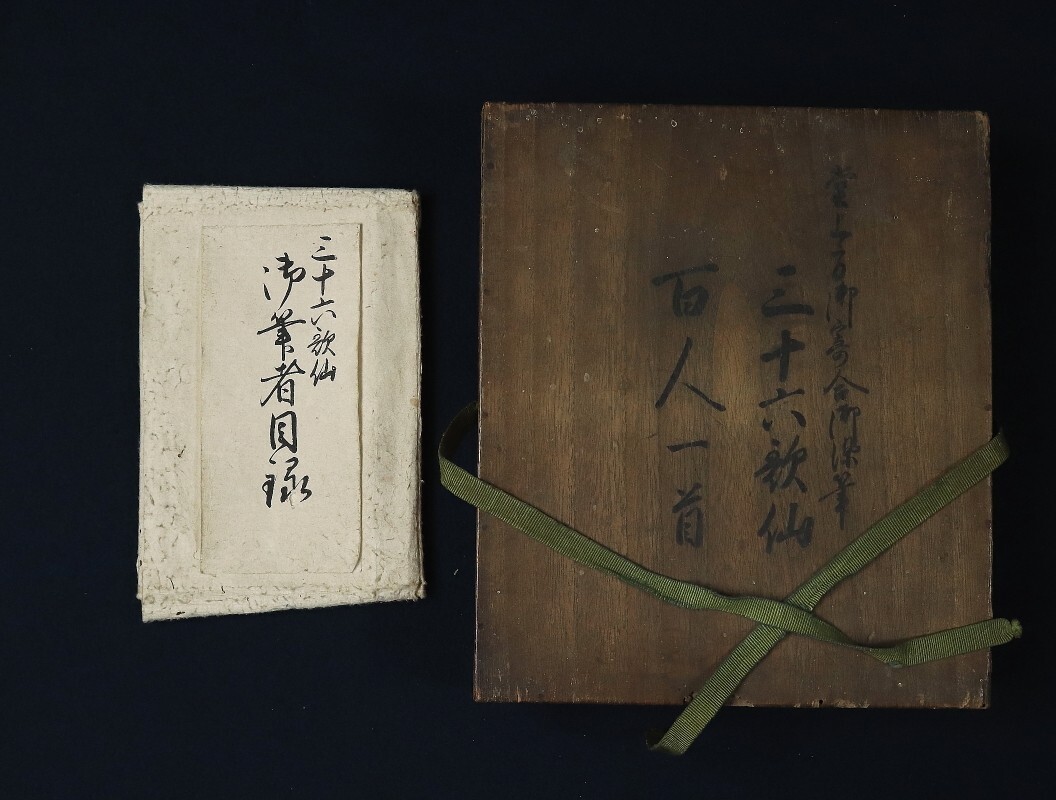 三十六歌仙
御筆者目録
堂上方御寄合御染筆
三十六歌仙
百人一首